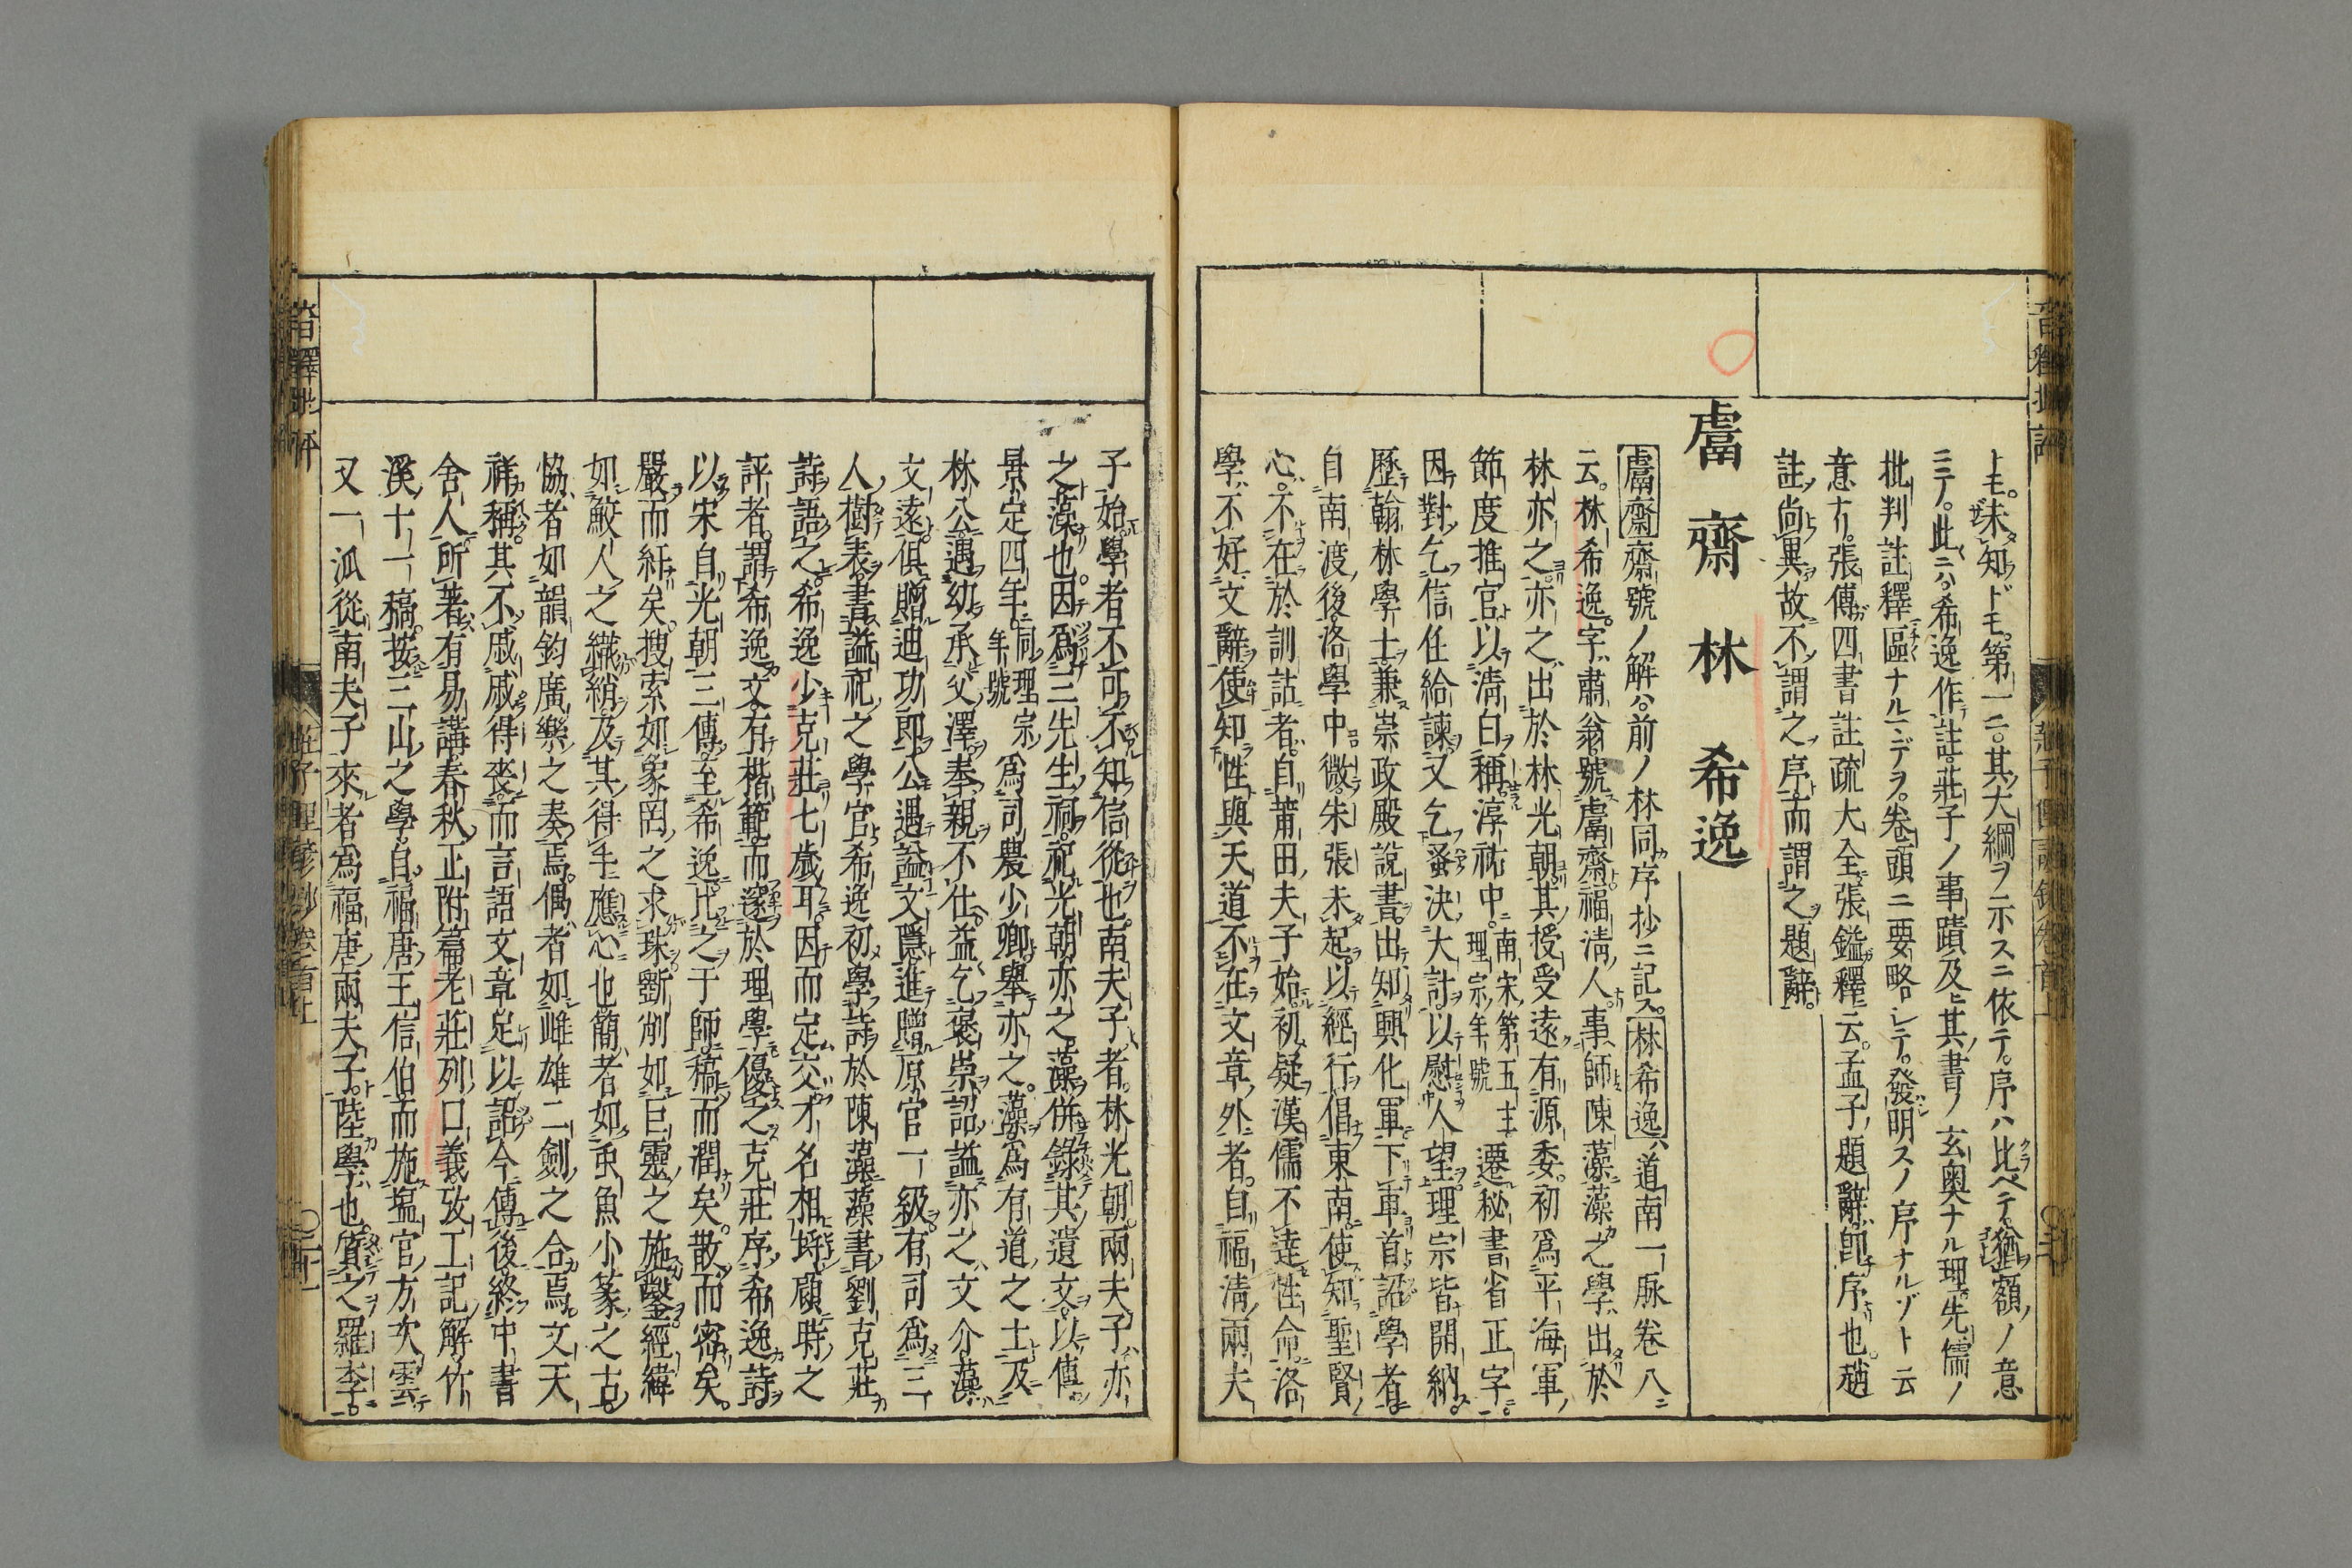 トモ。未知ドモ。第一ニ。其大綱ヲ示スニ依テ。序ハ比ベテ。猶額ノ意
ニテ。此ニハ。希逸作註。莊子ノ事蹟及ヒ其書ノ玄奧ナル理。先儒ノ
批判註釋區ナルマデヲ。卷頭ニ要略シテ。發明スノ序ナルゾト云
意ナリ。張傅四書註疏大全。張鎰釋云。孟子題辭。即序也。趙
註尚異。故不謂之序。而謂之題辭。
鬳齋林希逸
鬳齋齋號ノ解ハ。前ノ林同序抄ニ記ス。林希逸ハ道南一脉卷八ニ
云。林希逸。字肅翁。號鬳齋。福清人。事師陳藻。藻之學出於
林亦之。亦之出於林光朝。其授受遠有源委。初爲平海軍
節度推官。以清白稱。淳祐中。南宋第五主理宗年號遷秘書省正字。
因對乞信任給諫。又乞蚤決大計。以慰人望。理宗皆開納。
歷翰林學士兼崇政殿說書。出知興化軍。下車首詔學者。
自南渡後。洛學中微。朱張未起。以經行倡東南。使知聖賢
心。不在於訓詁者。自莆田夫子始。初疑漢儒不逹性命。洛
學不好文辭。使知性與天道不在文章外者。自福清兩夫
子始。學者不可不知信從也。南夫子者。林光朝。兩夫子亦
之藻也。因爲三先生祠。祀光朝亦之藻。併錄其遺文以傳。
景定四年。同理宗年號爲司農少卿。舉亦之。藻爲有道之士。及
林公遇。幼承父澤。奉親不仕。益乞褒崇。詔謚亦之文介。藻
文遠。俱贈迪功郎。公遇謚文隱。進贈原官一級。有司爲三
人樹表。書謚祀之學官。希逸初學詩於陳藻。藻書劉克莊
詩語之。希逸少克莊七歲耳。因而定交。才名相埒。顧時之
評者。謂希逸文有楷範。而邃於理學優之。克莊序希逸詩
以宋自光朝三傳。至希逸。比之于師。稿而潤矣。散而密矣。
嚴而紆矣。搜索如象罔之求珠。斵削如巨靈之施鑿。經緯
如鮫人之織綃。及其得手應心也。簡者如䖝魚小篆之古。
恊者如韻鈞廣樂之奏焉。偶者如雌雄二劍之合焉。文天
祥稱。其不戚戚得喪。而言語文章。足以詔今傳後。終中書
舍人。所著有易講。春秋正附篇。老莊列口義。攷工記解。竹
溪十一稿。按三山之學。自福唐王信伯而施塩官。方次雲
又一派。從南夫子來者。爲福唐兩夫子。陸學也。質之羅李。